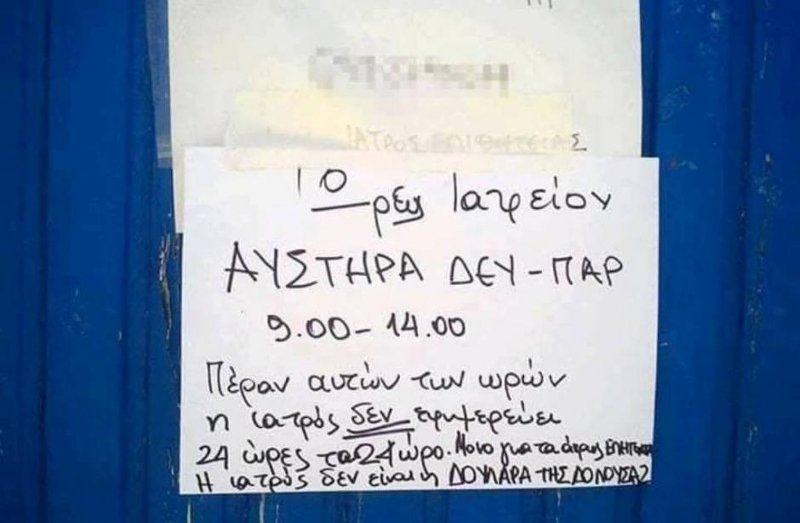 ΙΑΤΡΟΣ ΕΠΙΘΗΤΕΙΑΣ
Ώρες Ιατρείου
ΑΥΣΤΗΡΑ ΔΕΥ-ΠΑΡ
9.00-14.00
Πέραν αυτών των ωρών
η ιατρός δεν εφημερεύει
24 ώρες το 24ωρο. Μονο για τα άκρως
Η ιατρός δεν είναι η ΔΟΥΛΑΡΑ ΤΗΣ ΔΟΝΟΥΣΑΣ